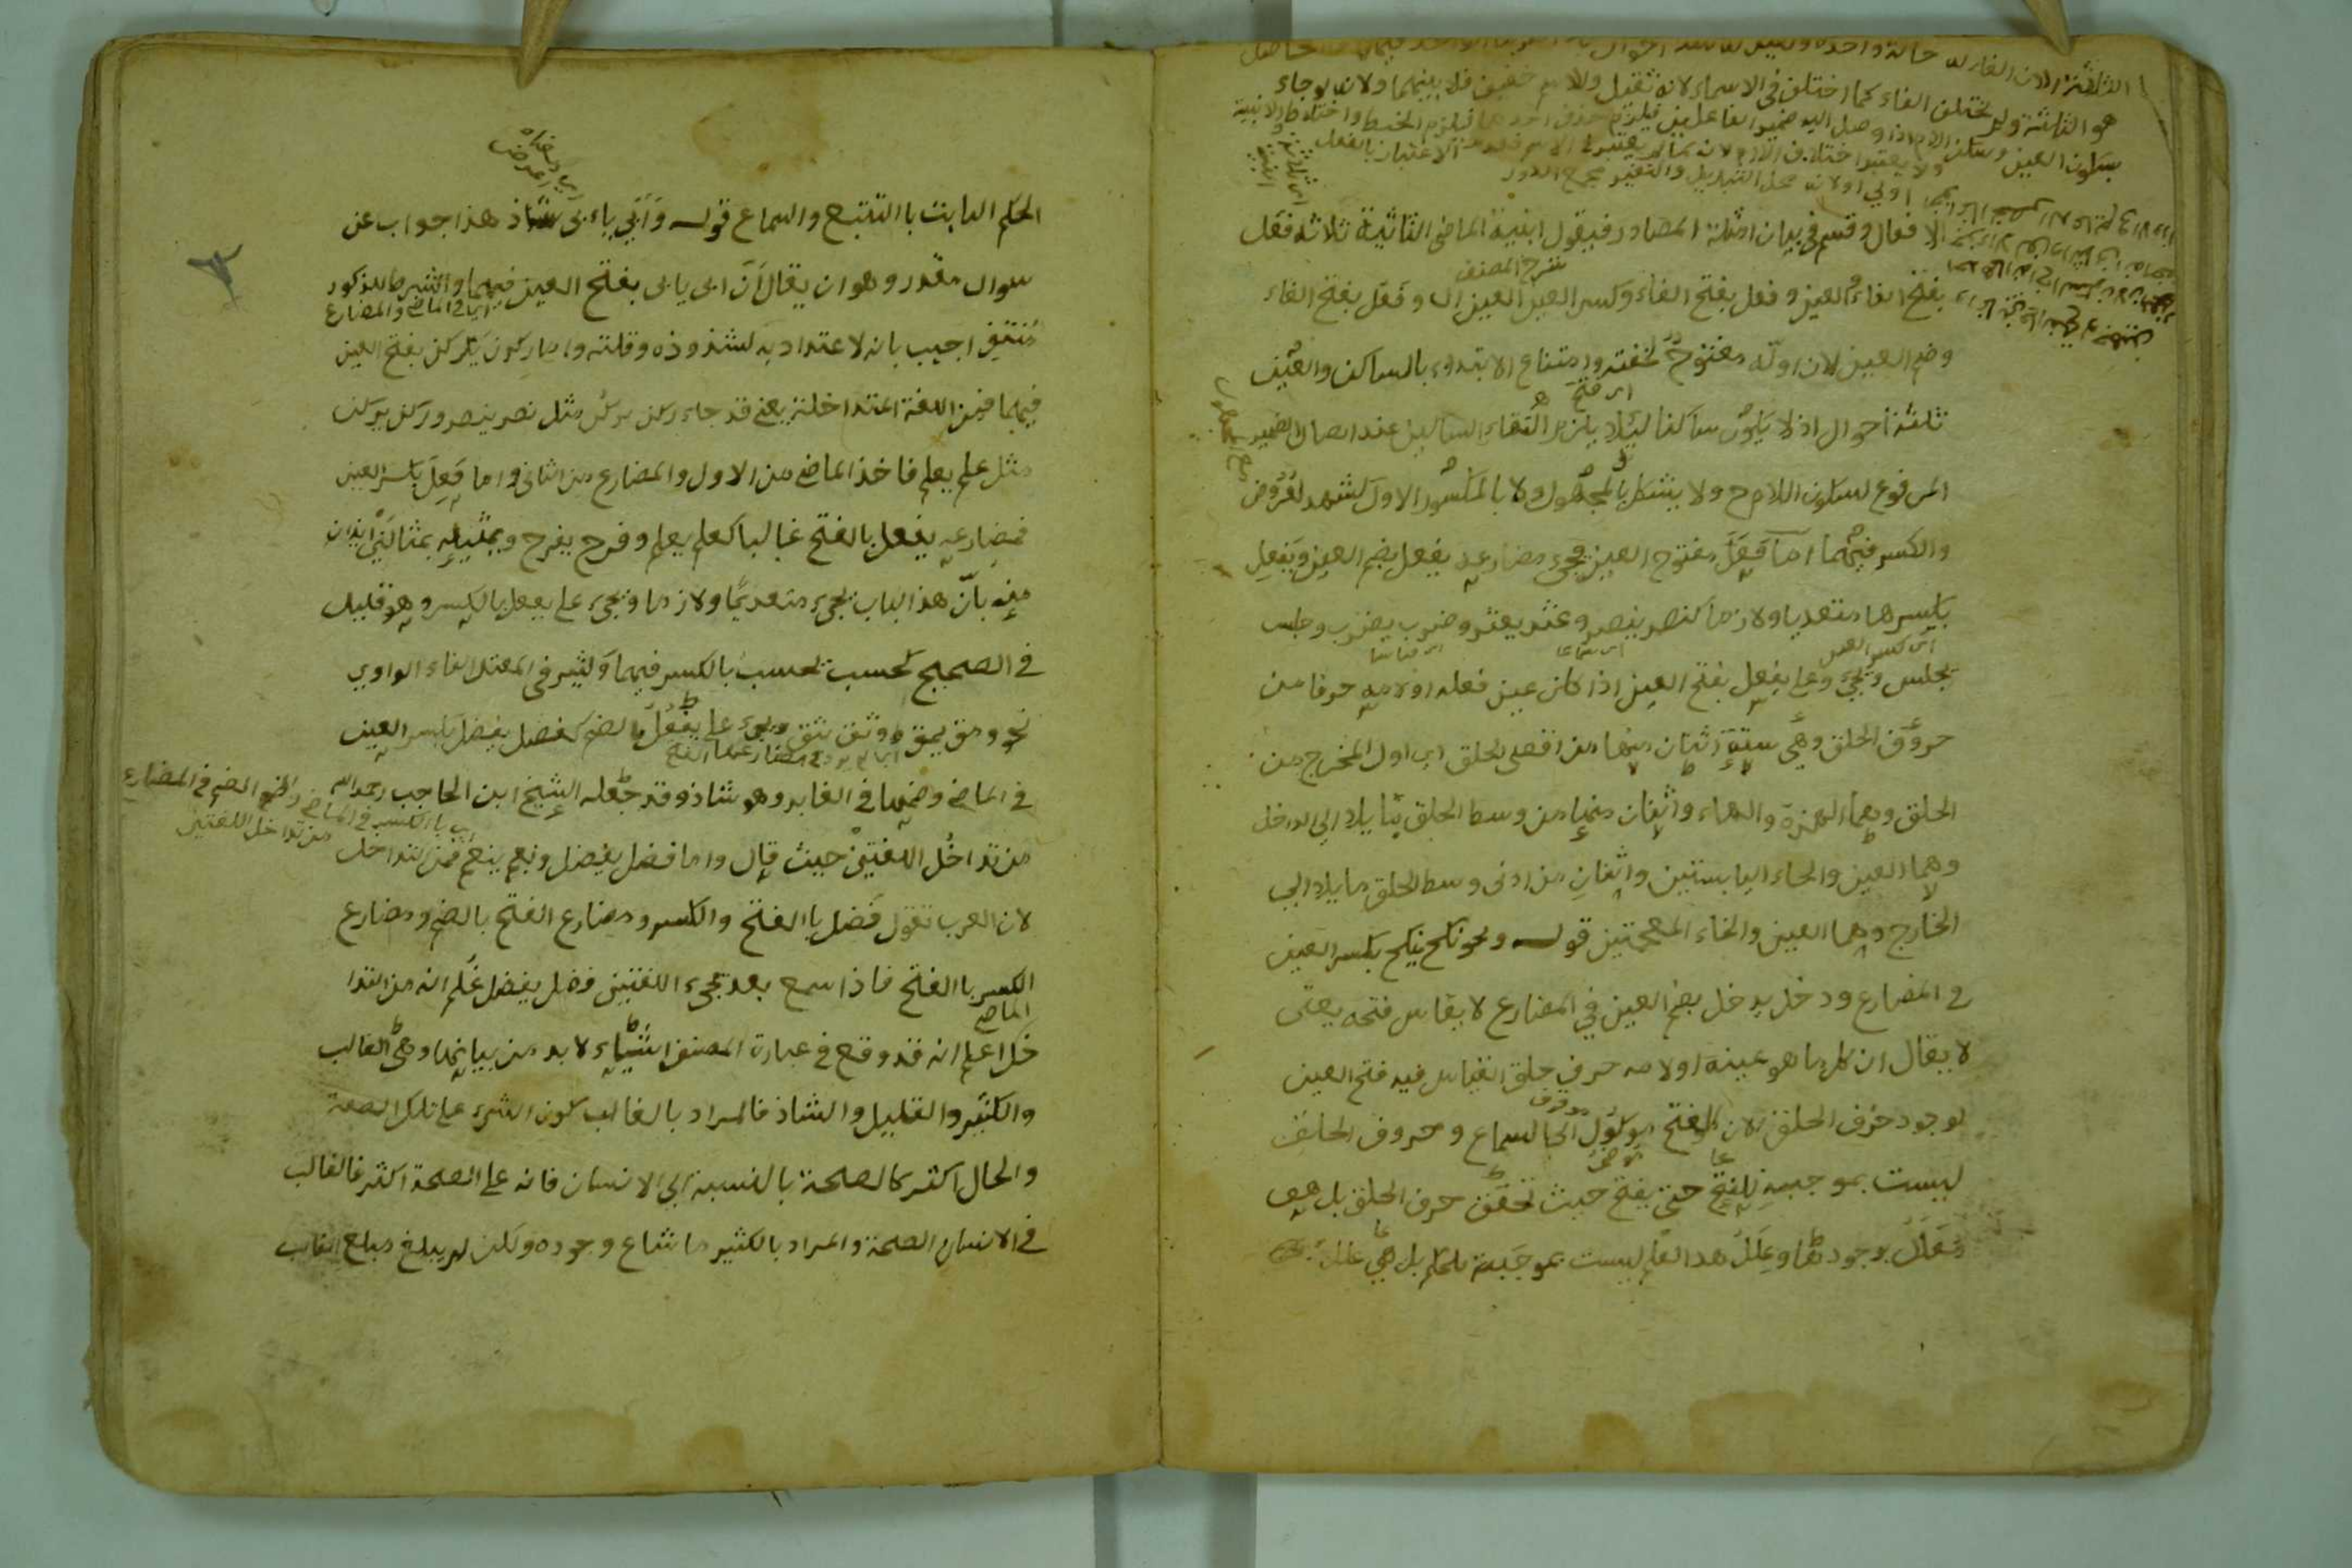 هو الثالثة ولم يختلف الفاء كما اختلف في الاسماء لانه ثقيل والاسم خفيف
الافعال وقسم في بيان امثلة المصادر فيقول ابنية الماضى الثلاثية ثلاثة فعَل
شرح المصنف
بفتح الفاء والعين وفعل بفتح الفاء وكسر العين وفعل بفتح الفاء
وضم العين لان اوله مفتوح لخفته وامتناع الابتداء بالساكن والعين
اى فتح
ثلثة احوال اذ لا يكون ساكنا ليلا يلزم التقاء الساكنين عند اتصال الضمير
المرفوع لسكون اللام ح ولا يشكل بالمجهول ولا بالمكسور الاول كشهد لعروض
والكسر فيهما اما فعَل مفتوح العين يجىء مضارعه يفعل بضم العين ويفعِل
بكسرها متعديا ولازما كنصر ينصر وعثر يعثر وضرب يضرب وجلس
اى كسر العين
يجلس ويجىء على يفعل بفتح العين اذا كان عين فعله او لامه حرفا من
حروف الحلق وهى ستة اثنان منها من اقصى الحلق اى اول المخرج من
الحلق وهما الهمزة والهاء واثنان منها من وسط الحلق ما يلا الى الداخل
وهما العين والحاء اليابستين واثنان من ادنى وسط الحلق ما يلا الى
الخارج وهما الغين والخاء المعجمتين قوله ونحو نكح ينكح بكسر العين
فى المضارع ودخل يدخل بضم العين فى المضارع لا يقاس فتحه يعنى
لا يقال ان كل ما هو عينه او لامه حرف حلق القياس فيه فتح العين
لوجود حرف الحلق لان الفتح موكول الى السماع وحروف الحلق
ليست بموجبة للفتح حتى يفتح حيث تحقق حرف الحلق بل هو
معلل بوجودها وعلل هذا العلم ليست بموجبة للحكم بل هى علل
الحكم الثابت با التتبع والسماع قوله وَأَبَى ياءبى شاذ هذا جواب عن
سوال مقدر وهو ان يقال أن ابى يابى بفتح العين فيهما والشرط المذكور
اى فى الماضى والمضارع
مُنتفٍ اجيب بانه لا اعتداد به لشذوذه وقلته واما ركن يركن بفتح العين
فيهما فمن اللغة المتداخلة يعنى قد جاء ركن يركن مثل نصر ينصر وركن يركن
مثل علم يعلم فاخذ الماضى من الاول والمضارع من الثانى واما فَعِلَ بكسر العين
فمضارعه يفعل بالفتح غالبا كعلم يعلم وفرح يفرح وتمثيله بمثالين ايذان
منه بانّ هذا الباب يجىء متعديًا ولازما ويجىء على يفعل بالكسر وهو قليل
فى الصحيح كحسب يحسب بالكسر فيهما وكثير فى المعتل الفاء الواوي
نحو ومق يمق ووثق يثق ويجىء على يَفْعُلُ بالضم كفضل يفضل بكسر العين
فى الماضى وضمها فى الغابر وهو شاذ وقد جعله الشيخ ابن الحاجب رحمه الله
اى بالكسر فى الماضى والضم فى المضارع
من تداخل اللغتين
من تداخُل اللغتين حيث قال واما فضل يفضل ونعم ينعم فمن تداخل
لان العرب تقول فضل با الفتح والكسر ومضارع الفتح بالضم ومضارع
الكسر با الفتح فاذا سمع بعد مجىء اللغتين فضل يفضل عُلم انه من التدا
الماضى
خل اعلم انه قد وقع فى عبارة المصنف اشياء لا بد من بيانها وهى الغالب
والكثير والقليل والشاذ فالمراد بالغالب كون الشىء على تلك الصفة
والحال اكثر كالصحة بالنسبة الى الانسان فانه على الصحة اكثر فالغالب
فى الانسان الصحة والمراد بالكثير ما شاع وجوده ولكن لم يبلغ مبلغ الغالب